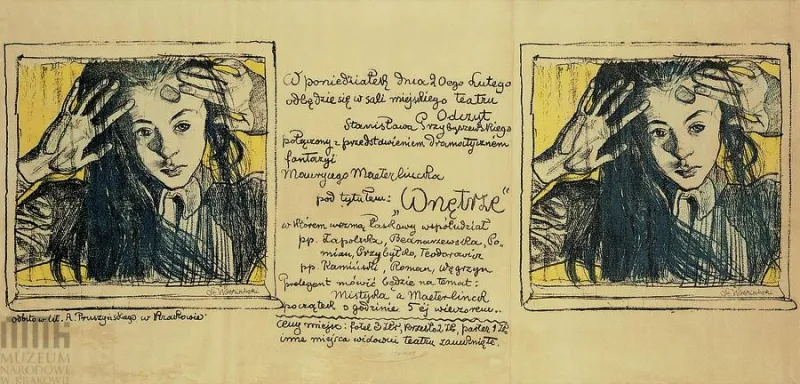 W poniedziałek dnia 20ego Lutego
odbędzie się w sali miejskiego teatru
Odczyt
Stanisława Przybyszewskiego
połączony z przedstawieniem dramatycznem
fantazyi
Maurycego Maeterlincka
pod tytułem: „Wnętrze"
w którem wezmą łaskawy współudział
pp. Zapolska, Bednarzewska, Po-
miau, Przybyłko, Teodorowicz
pp. Kamiński, Roman, Węgrzyn
Prelegent mówić będzie na temat:
Mistyka a Maeterlinck
początek o godzinie 5ej wieczorem..
Ceny miejsc: fotel 3 złr, krzesło 2 złr, parter 1 złr
inne miejsca widowni teatru zamknięte.
St. Wyspiański
St. Wyspiański
odbito w lit. A. Pruszyńskiego w Krakowie
MUZEUM
NARODOWE
W KRAKOWIE